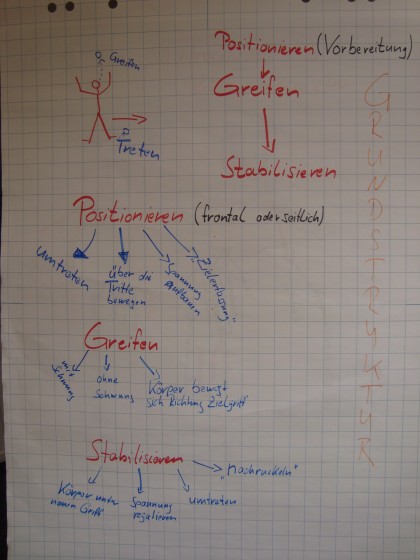 Greifen
Treten
Positionieren (Vorbereitung)
Greifen
Stabilisieren
GRUNDSTRUKTUR
Positionieren (frontal oder seitlich)
umtreten
über die
Tritte
bewegen
Spannung
aufbauen
Zielerfassung
Greifen
mit
Schwung
ohne
Schwung
Körper bewegt
sich Richtung Zielgriff
Stabilisieren
"nachruckeln"
Körper unter
neuen Griff
Spannung
regulieren
umtreten